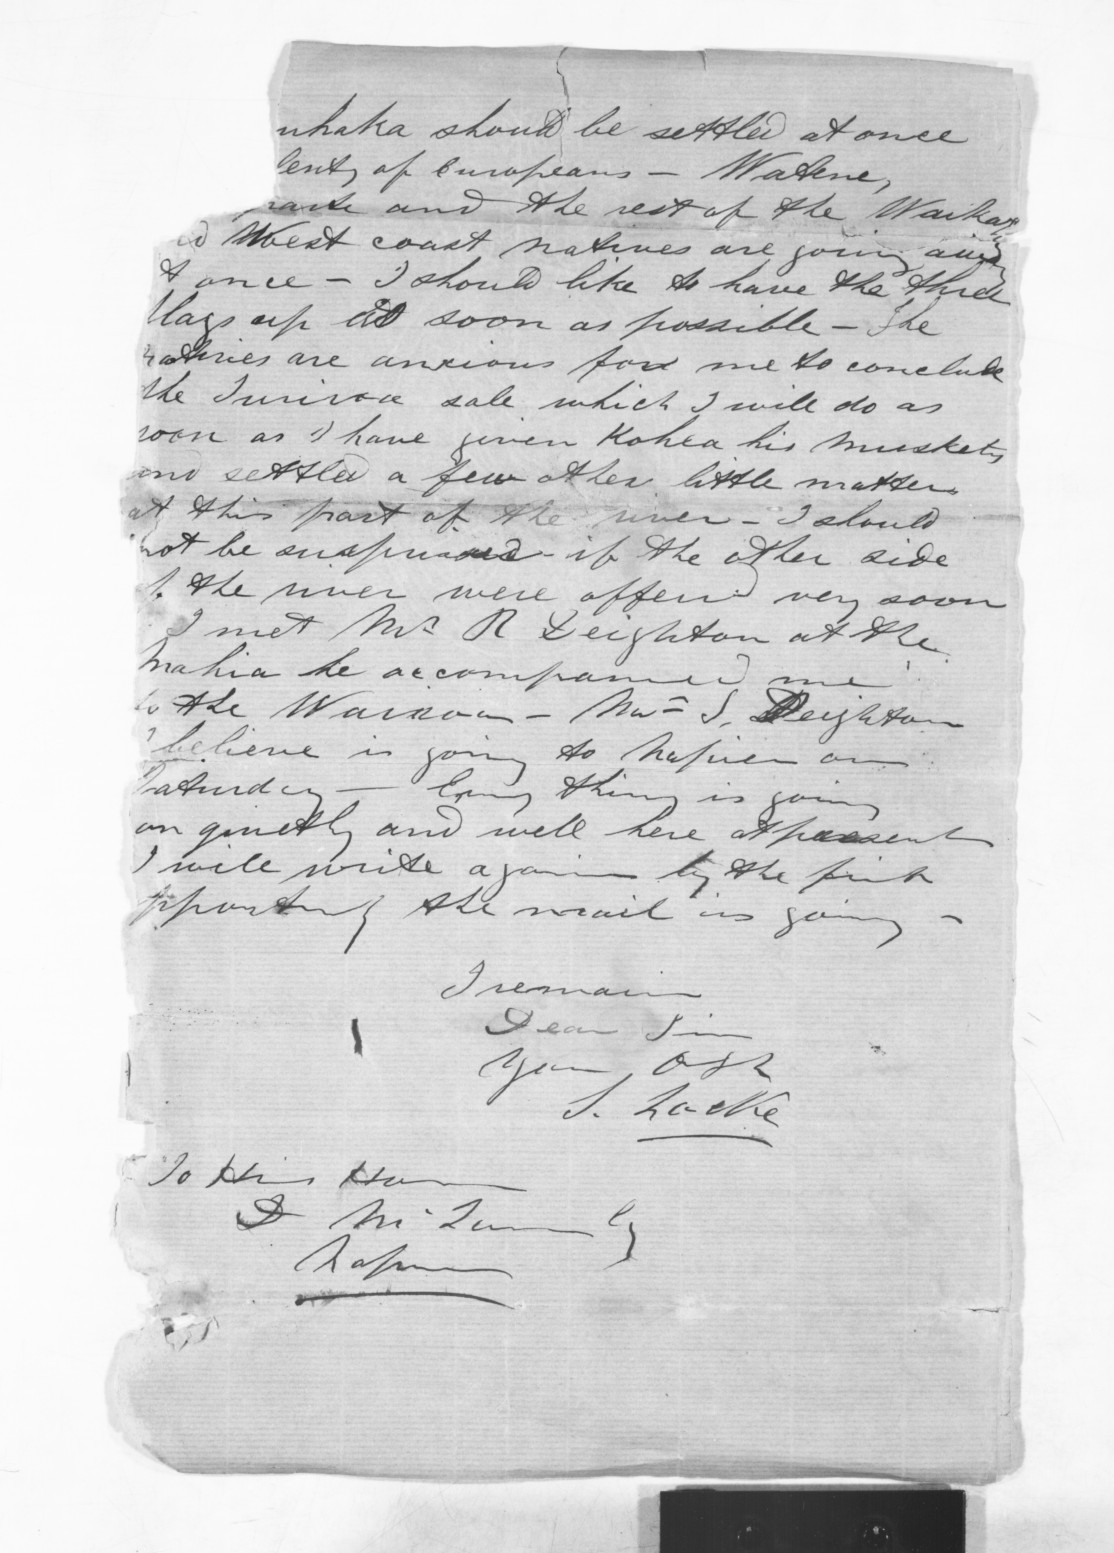 uhaka should be settled at once
lenty of Europeans – Watene,
and the rest of the Waikato
d West coast natives are going away
t once – I should like to have the three
flags up as soon as possible – The
natives are anxious for me to conclude
the Turiroa sale which I will do as
soon as I have given Kohea his muskets
and settled a few other little matters
at this part of the river – I should
not be susprised – if the other side
of the river were offered very soon
I met Mr R Deighton at the
Mahia he accompanied me
to the Wairoa – Mr S. Deighton
I believe is going to Napier on
Saturday – Every thing is going
on quietly and well here at present
I will write again by the first
pportunity the mail is going –
I remain
Dear Sir
Your Obt
S. Locke
To His Honor
D McLean Esq
Napier